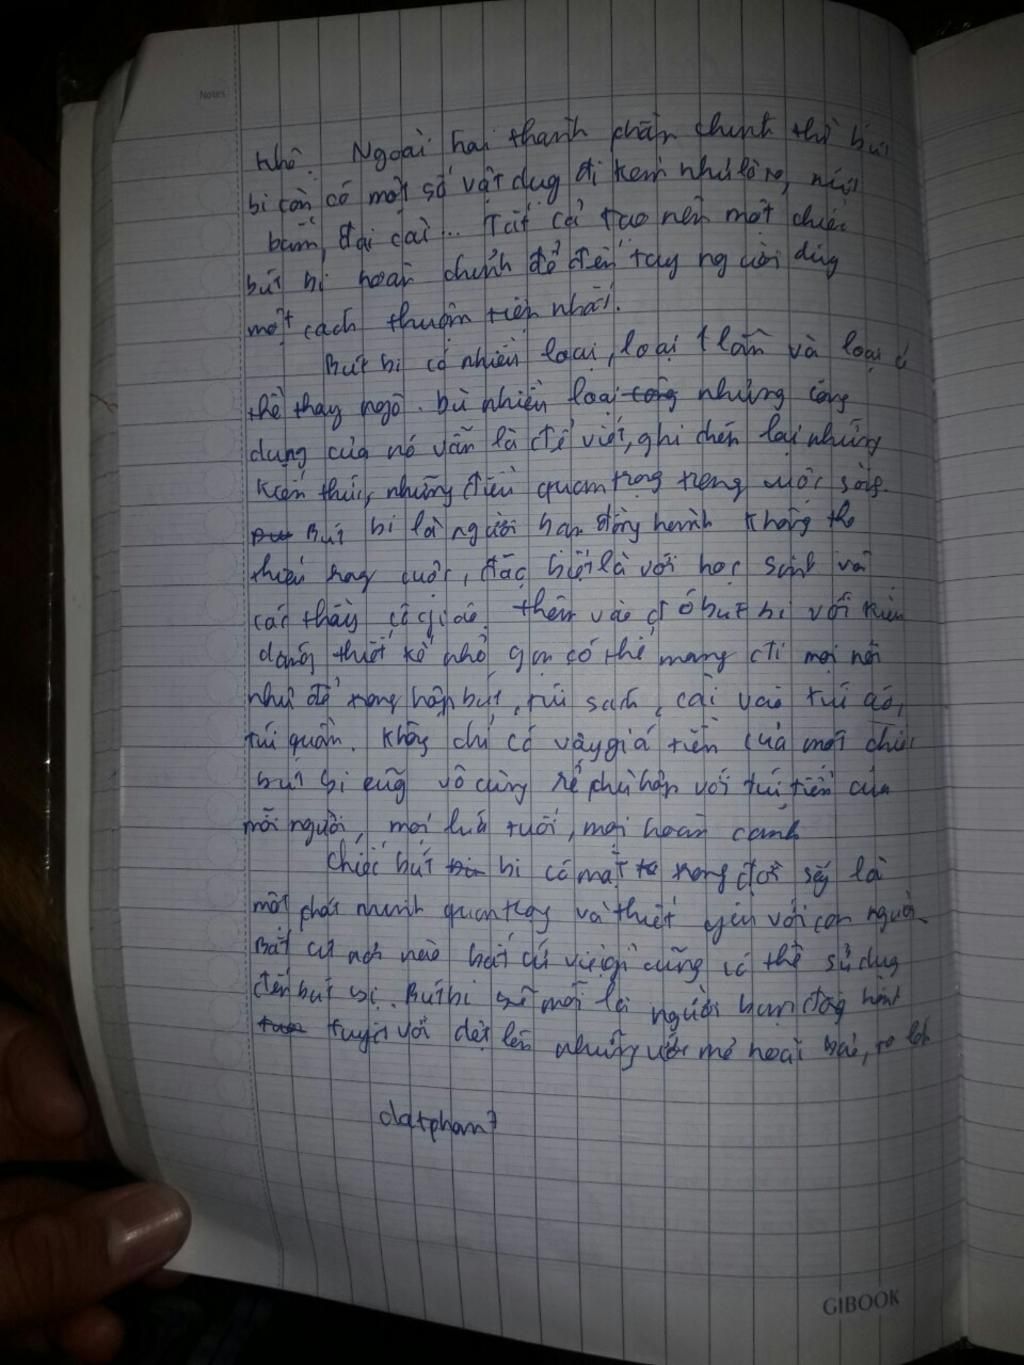 Notes
nhỏ. Ngoài hai thành phần chính thì bút
bi còn có một số vật dụng đi kèm như lò xo, nút
bấm, đai cài... Tất cả tạo nên một chiếc
bút bi hoàn chỉnh để đến tay người dùng
một cách thuận tiện nhất.
Bút bi có nhiều loại, loại 1 lần và loại có
thể thay ngò. Dù nhiều loại nhưng công
dụng của nó vẫn là để viết, ghi chép lại những
kiến thức, những điều quan trọng trong cuộc sống.
Bút bi là người bạn đồng hành không thể
thiếu trong cuộc, đặc biệt là với học sinh và
các thầy cô giáo. thêm vào đó bút bi với kiểu
dáng thiết kế nhỏ gọn có thể mang đi mọi nơi
như để trong hộp bút, túi sách, cài vào túi áo,
túi quần. Không chỉ có vậy giá tiền của mỗi chiếc
bút bi cũng vô cùng rẻ phù hợp với túi tiền của
mỗi người, mọi lứa tuổi, mọi hoàn cảnh
Chiếc bút bi có mặt trong đời sống là
một phát minh quan trọng và thiết yếu với con người.
Bất cứ nơi nào bất cứ việc gì cũng có thể sử dụng
đến bút bi. Bút bi sẽ mãi là người bạn đồng hành
tuyệt vời dệt lên những ước mơ hoài bão,
datphan7
GIBOOK